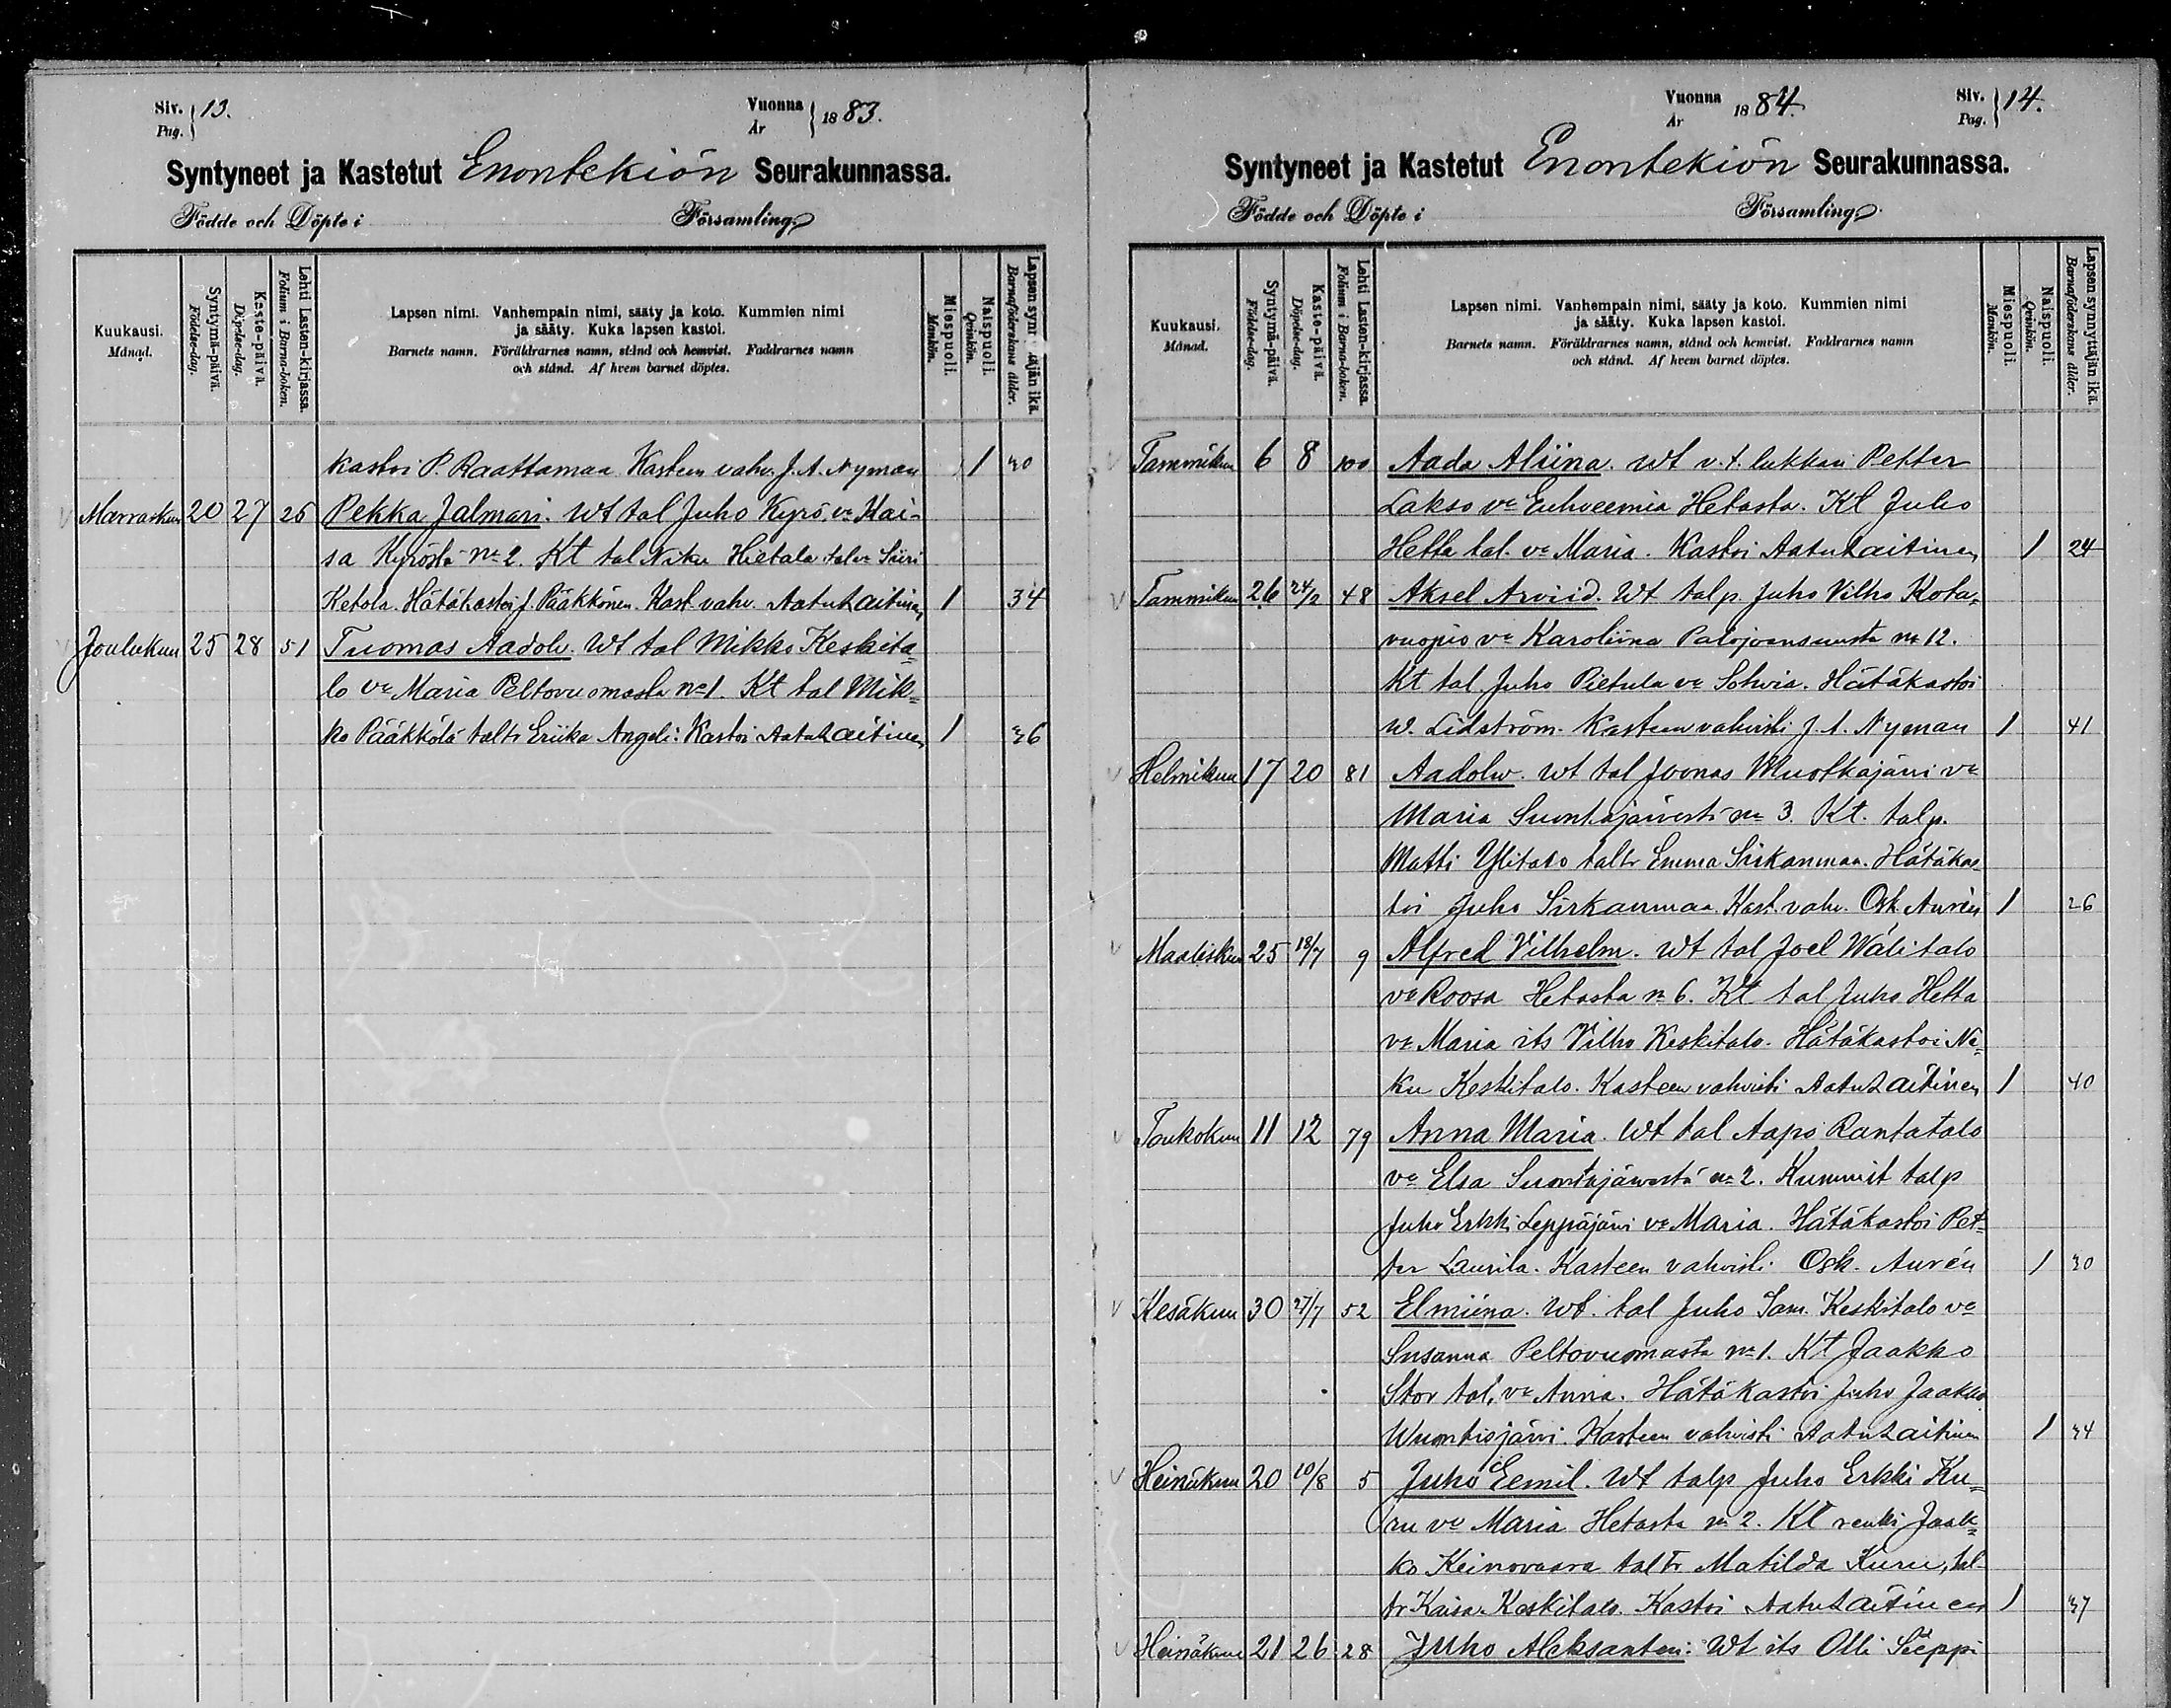 Siv. 13.
Pag.
Vuonna 1883.
År
Syntyneet ja Kastetut Enontekiön Seurakunnassa.
Födde och Döpte i Församling
Kuukausi.
Månad.
Syntymä-päivä.
Födelse-dag.
Kaste-päivä.
Döpelse-dag.
Lehti Lasten-kirjassa.
Folium i Barna-boken.
Lapsen nimi. Vanhempain nimi, sääty ja koto. Kummien nimi
ja sääty. Kuka lapsen kastoi.
Barnets namn. Föräldrarnes namn, stånd och hemvist. Faddrarnes namn
och stånd. Af hvem barnet döptes.
Miespuoli.
Mankön.
Naispuoli.
Qvinkön.
Lapsen synnyttäjän ikä.
Barnaföderskans ålder.
kastoi P. Raattamaa. Kasteen vahv. J. A. Nyman 1 30
Marraskuu 20 27 26 Pekka Jalmari. Wt tal Juho Kyrö, vo Kai-
sa Kyröstä No 2. Kt tal Niku Hietala talv Siiri
Ketola. Hätäkastoi J. Pääkkönen. Kast vahv. Aatu Laitinen 1 34
Joulukuu 25 28 51 Tuomas Aadolv. Wt tal Mikko Keskita=
lo vo Maria Peltovuomasta No 1. Kt tal Mik=
ko Pääkkölä taltr Eriika Angeli: Kastoi Aatu Laitinen 1 36
Vuonna 1884.
År
Siv. 14.
Pag.
Syntyneet ja Kastetut Enontekiön Seurakunnassa.
Födde och Döpte i Församling
Kuukausi.
Månad.
Syntymä-päivä.
Födelse-dag.
Kaste-päivä.
Döpelse-dag.
Lehti Lasten-kirjassa.
Folium i Barna-boken.
Lapsen nimi. Vanhempain nimi, sääty ja koto. Kummien nimi
ja sääty. Kuka lapsen kastoi.
Barnets namn. Föräldrarnes namn, stånd och hemvist. Faddrarnes namn
och stånd. Af hvem barnet döptes.
Miespuoli.
Mankön.
Naispuoli.
Qvinkön.
Lapsen synnyttäjän ikä.
Barnaföderskans ålder.
Tammikuu 6 8 100 Aada Aliina. Wt v.t. lukkari Petter
Lakso vo Euhveemia Hetasta. Kt Juho
Hetta tal. vo Maria. Kastoi Aatu Laitinen 1 24
Tammikuu 26 24/2 48 Aksel Arviid. Wt talp. Juho Vilho Kota=
vuopio vo Karoliina Palojoensuusta no 12.
Kt tal. Juho Pietula vo Sohvia. Hätäkastoi
W. Lidström. Kasteen vahvisti J. A. Nyman 1 41
Helmikuu 17 20 81 Aadolw. Wt tal Joonas Muotkajärvi vo
Maria Suontajärvestä no 3. Kt. talp.
Matti Ylitalo taltr Emma Sirkanmaa. Hätäkas=
toi Juho Sirkanmaa. Kast. vahv. Osk. Aurén 1 26
Maaliskuu 25 18/7 9 Alfred Vilhelm. Wt tal Joel Wälitalo
vo Roosa Hetasta no 6. Kt tal Juho Hetta
vo Maria its Vilho Keskitalo. Hätäkastoi Ni=
ku Keskitalo. Kasteen vahvisti Aatu Laitinen 1 40
Toukokuu 11 12 79 Anna Maria. Wt tal Aapo Rantatalo
vo Elsa Suontajärvestä no 2. Kummit talp
Juho Erkki Leppäjärvi vo Maria. Hätäkastoi Pet=
ter Laurila. Kasteen vahvisti Osk. Aurén 1 30
Kesäkuu 30 27/7 52 Elmiina. Wt. tal Juho Sam. Keskitalo vo
Susanna Peltovuomasta no 1. Kt Jaakko
Stor tal, vo Anna. Hätäkastoi Juho Jaakko
Wuontisjärvi. Kasteen vahvisti Aatu Laitinen 1 34
Heinäkuu 20 10/8 5 Juho Eemil. Wt talp Juho Erkki Ku=
ru vo Maria Hetasta no 2. Kt renki Jaak=
ko Keinovaara taltr Matilda Kuru, tal-
tr Kaisa Keskitalo. Kastoi Aatu Laitinen 1 37
Heinäkuu 21 26 28 Juho Aleksanteri. Wt its Olli Sieppi